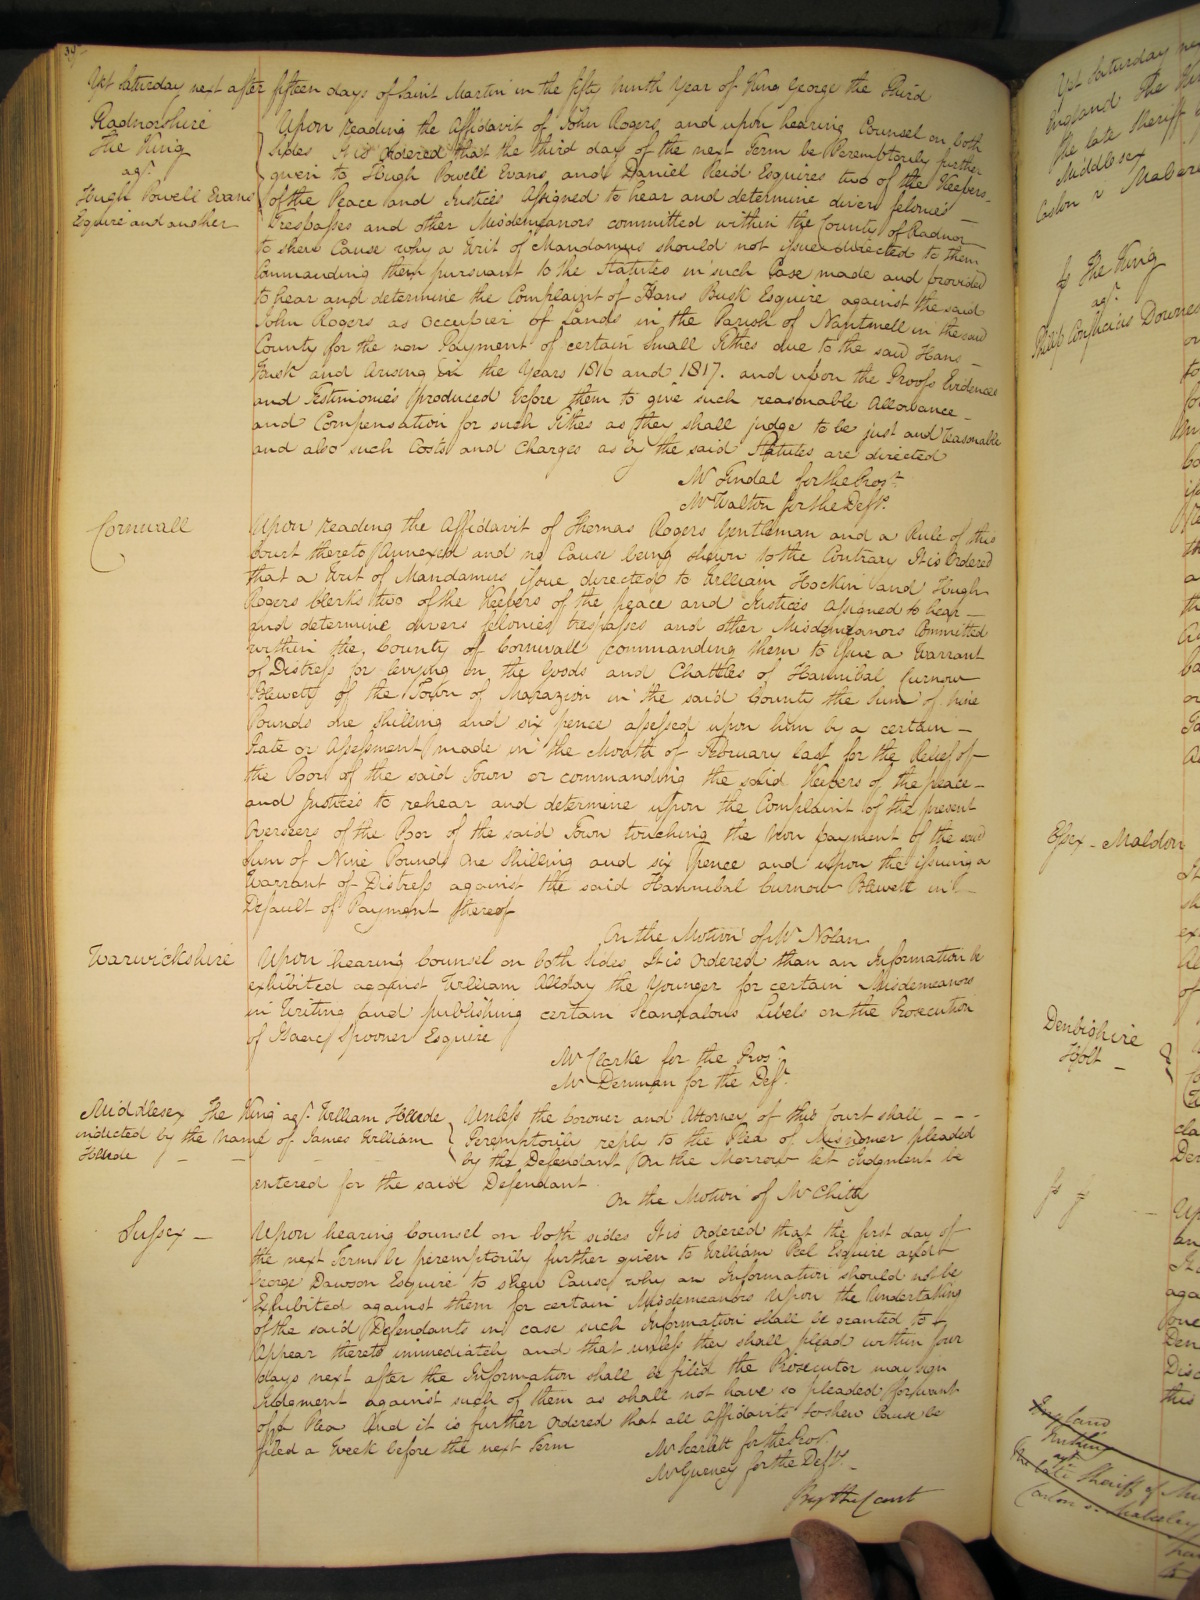 Yet Saturday next after fifteen days of Saint Martin in the fifty Ninth Year of King George the Third
Radnorshire
The King
agt.
Hugh Powell Evans
Esquire and another
Upon reading the Affidavit of John Rogers, and upon hearing Counsel on both
sides It is Ordered that the third day of the next Term be Peremptorily further
given to Hugh Powell Evans and Daniel Reid Esquires two of the Keepers
of the Peace and Justices Assigned to hear and determine divers felonies
Trespasses and other Misdemeanors committed within the County of Radnor
to shew Cause why a Writ of Mandamus should not issue directed to them
Commanding them pursuant to the Statutes in such Case made and provided
to hear and determine the Complaint of Hans Busk Esquire against the said
John Rogers as Occupier of Lands in the Parish of Nantmell in the said
County for the non Payment of certain Small Tithes due to the said Hans
Busk and Arising in the Years 1816 and 1817. and upon the Proofs Evidences
and Testimonies produced before them to give such reasonable Allowance
and Compensation for such Tithes as they shall judge to be just and reasonable
and also such Costs and Charges as by the said Statutes are directed
Mr Tindal for the Prosr.
Mr Walton for the Defts.
Cornwall
Upon reading the Affidavit of Thomas Rogers Gentleman and a Rule of this
Court thereto Annexed and no Cause being shewn to the Contrary It is Ordered
that a Writ of Mandamus issue directed to William Hockin and Hugh
Rogers Clerks two of the Keepers of the peace and Justices assigned to hear
and determine divers felonies trespasses and other Misdemeanors Committed
within the County of Cornwall commanding them to issue a Warrant
of Distress for levying on the Goods and Chatteles of Hannibal Curnow
Blewett of the Town of Marazion in the said County the Sum of Nine
Pounds one shilling and six pence assessed upon him by a certain
Rate or Assessment made in the Month of February last for the Relief of
the Poor of the said Town or commanding the said Keepers of the peace
and Justices to rehear and determine upon the Complaint of the present
Overseers of the Poor of the said Town touching the Non payment of the said
Sum of Nine Pounds One Shilling and six pence and upon the issuing a
Warrant of Distress against the said Hannibal Curnow Blewett in
Default of Payment thereof
On the Motion of Mr Nolan
Warwickshire
Upon hearing Counsel on both sides It is Ordered than an Information be
exhibited against William Allday the Younger for certain Misdemeanors
in Writing and publishing certain Scandalous Libels on the Prosecution
of Isaac Spooner Esquire
Mr Clarke for the Prosr.
Mr Denman for the Deft.
Middlesex The King agt. William
indicted by the Name of James William
Unless the Coroner and Attorney of this Court shall
Peremptorily reply to the Plea of Misnomer pleaded
by the Defendant On the Morrow let Judgment be
entered for the said Defendant
On the Motion of Mr Chitty
Sussex
Upon hearing Counsel on both sides It is Ordered that the first day of
the next Term be peremptorily further given to William Peel Esquire and
George Dawson Esquire to shew Cause why an Information should not be
Exhibited against them for certain Misdemeanors Upon the Undertaking
of the said Defendants in case such Information shall be granted to
Appear thereto immediately and that unless they shall plead within four
days next after the Information shall be filed the Prosecutor may sign
Judgment against such of them as shall not have so pleaded for want
of a Plea And it is further Ordered that all Affidavits to shew Cause be
filed a Week before the next Term
Mr Scarlett for the Prosr.
Mr Gurney for the Defts.
By the Court
Yet Saturday
England The
the late Sheriff
Middlesex
The King
agt.
Essex - Maldon
Denbighshire
Holt
England
agt.
The late Sheriff of